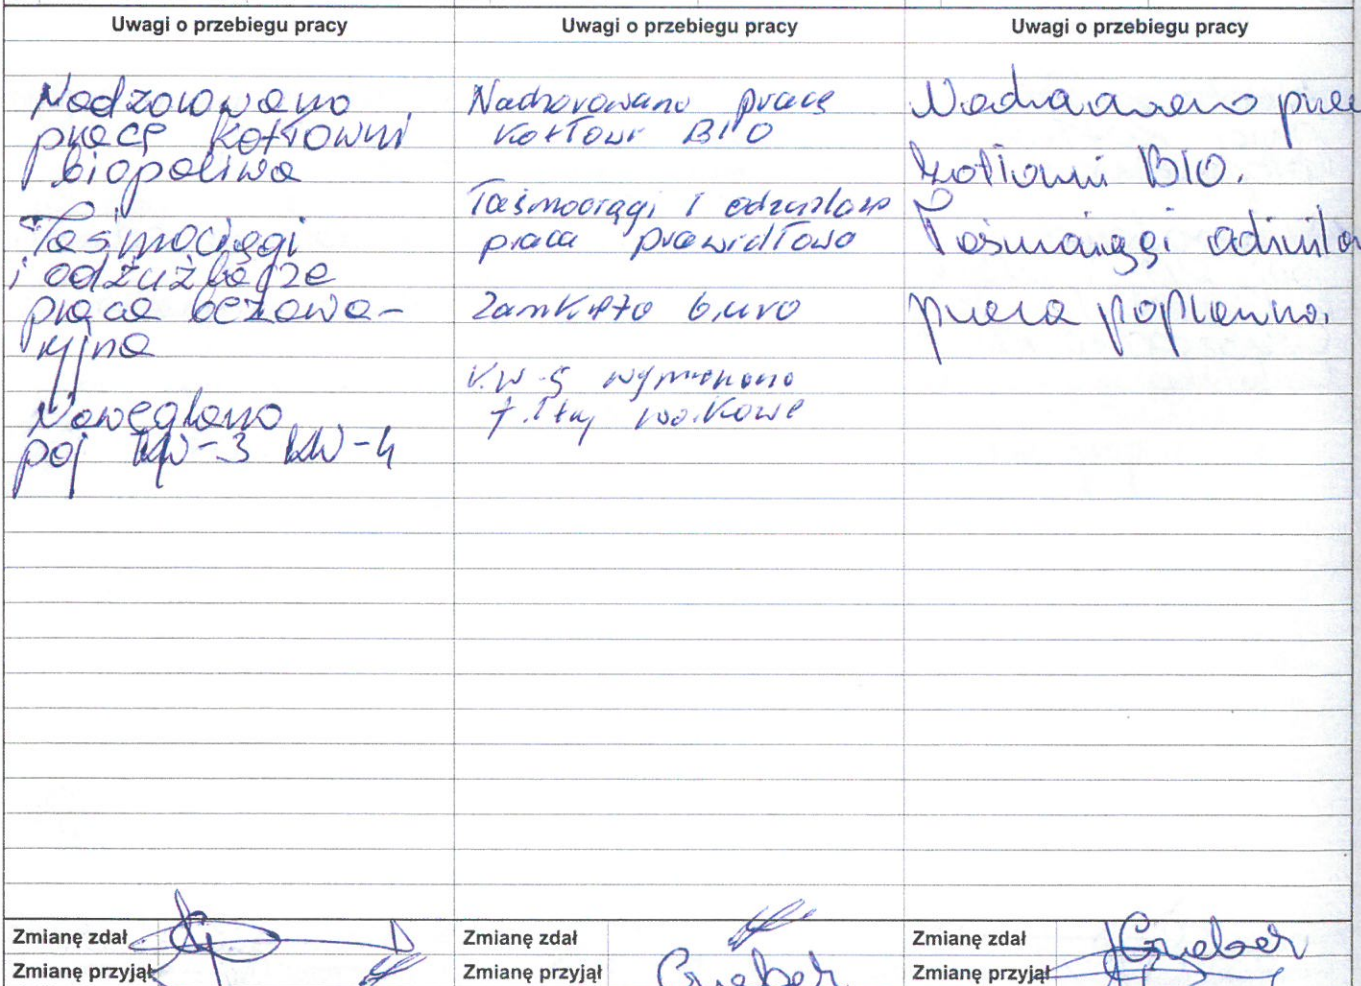 Uwagi o przebiegu pracy
Nadzorowano
pracę kotłowni
biopaliwa
Taśmociągi
i odżużlacze
praca bezawa-
ryjna
Nawęglano
poj KW-3 KW-4
Zmianę zdał
Zmianę przyjął
Uwagi o przebiegu pracy
Nadzorowano pracę
Kotłowni BIO
Taśmociągi i odżużlacze
praca prawidłowa
Zamknięto biuro
K.W-5 wymieniono
filtry workowe
Zmianę zdał
Zmianę przyjął Grueber
Uwagi o przebiegu pracy
Nadzorowano prac
kotłowni BIO.
Taśmociągi odżużla
praca poprawna.
Zmianę zdał Grueber
Zmianę przyjął